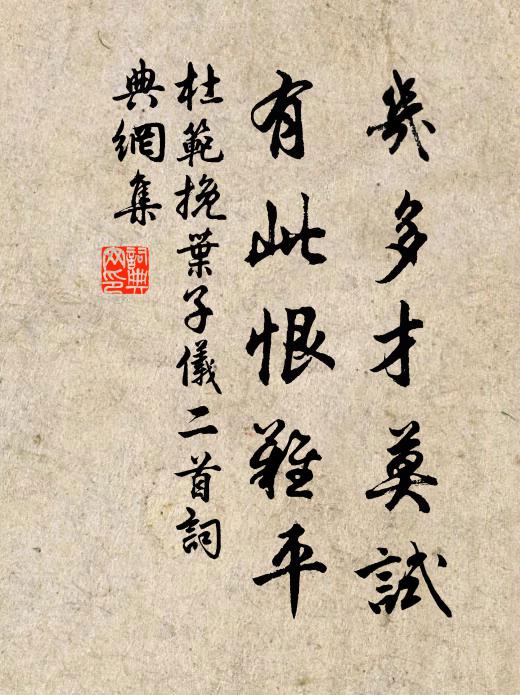 幾多才莫試
有此恨難平
杜範挽葉子儀二首詞
典網集
詞典